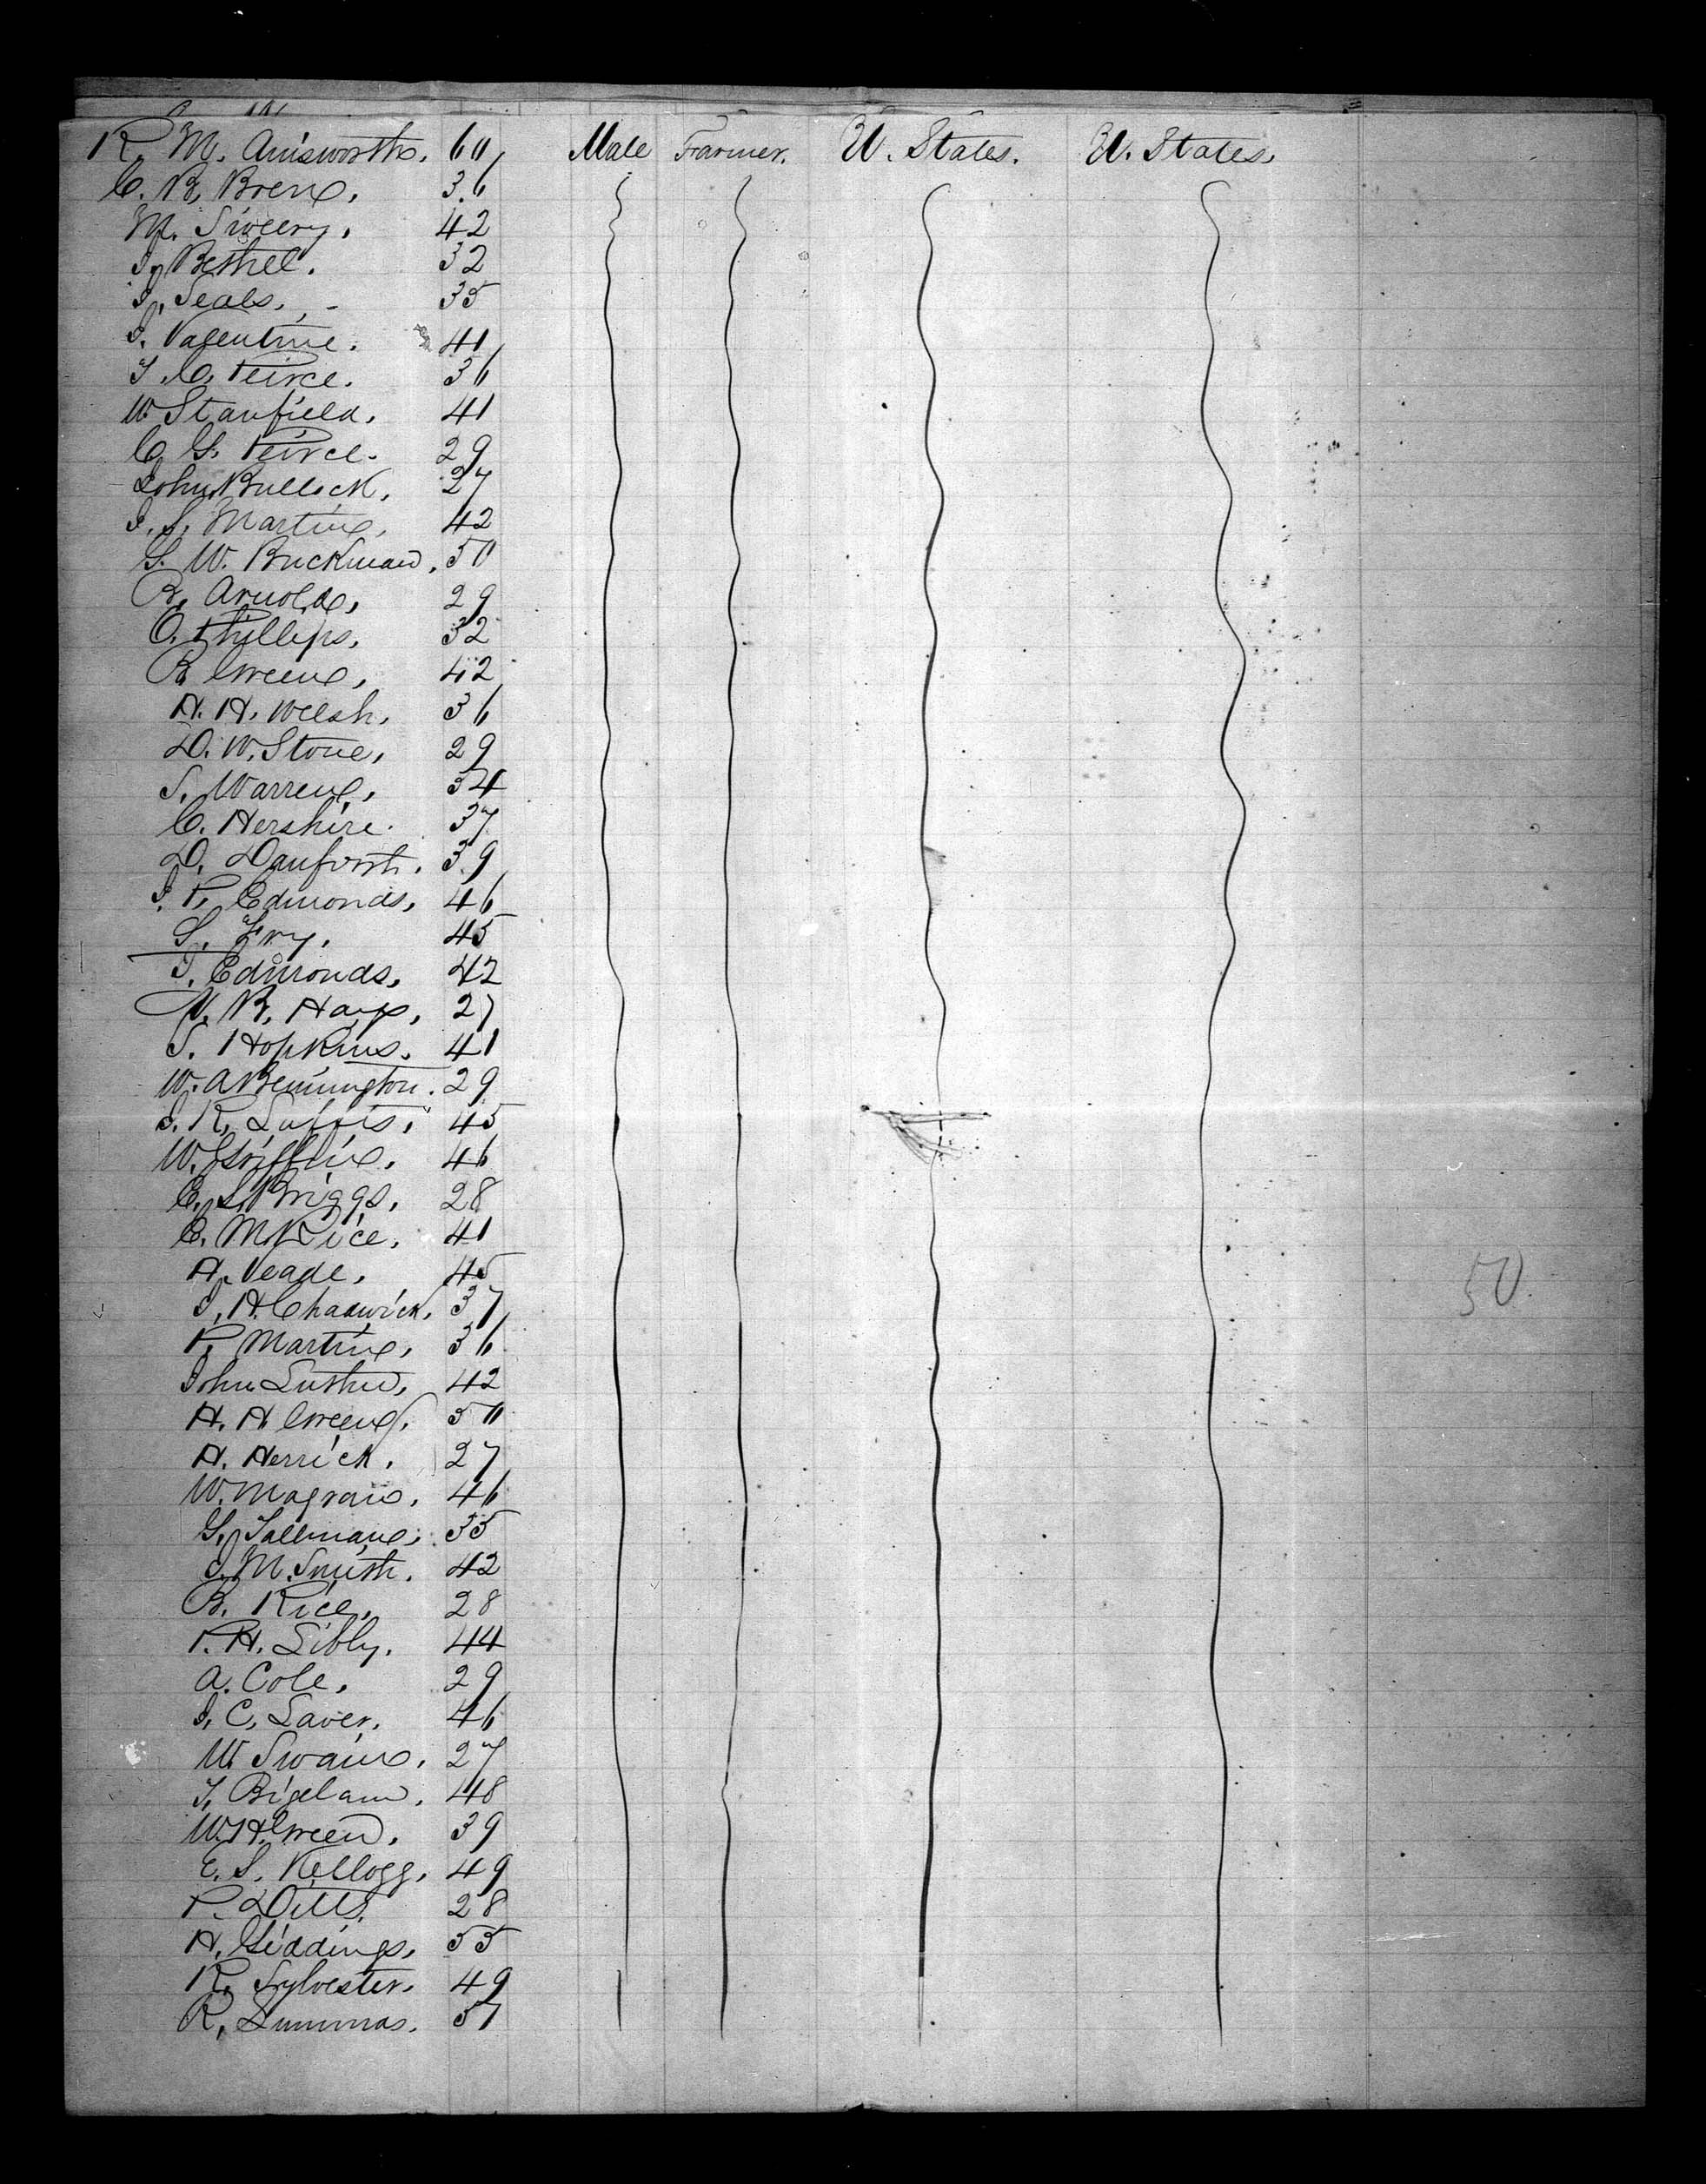 R. M. Ainsworth. 60, Male Farmer. U. States. U. States.
C. B. Bren, 36
M. Sweery, 42
J. Bethel. 32
J. Seals, - 35
J. Valentine. 41
T. C. Peirce. 36
W Stanfield, 41
C. G. Peirce. 29
John Bullock, 27
J. S. Martin, 42
G. W. Buckman, 50
B. Arnold, 29
O. Phillips, 32
B Green, 42
H. H. Welsh, 36
D. W. Stone, 29
S. Warren, 34
C. Hershire. 37
D. Danforth. 39
J. P. Edmonds, 46
S. Fry. 45
J. Edmonds, 42
N. B. Hays, 27
S. Hopkins. 41
W. A Bennington. 29
J. R. 45
W. Griffin, 46
C. S. Briggs, 28
C. M. Rice, 41
H. Veade, 45
J. H. Chadwick, 37
P. Martin, 36
John Luther, 42
H. H Green, 50
H. Herrick, 27
W. Magrain, 46
G. Tallman, 35
J. M. Smith. 42
B. Rice, 28
P. H. Libly. 44
A. Cole, 29
J. C. Laver, 46
W. Swain, 27
T. Bigelam, 48
W. H. Green, 39
E. S. Kellogg, 49
P. Ditts. 28
H. Giddings, 55
R. Sylvester. 49
R. Dummas. 57
50